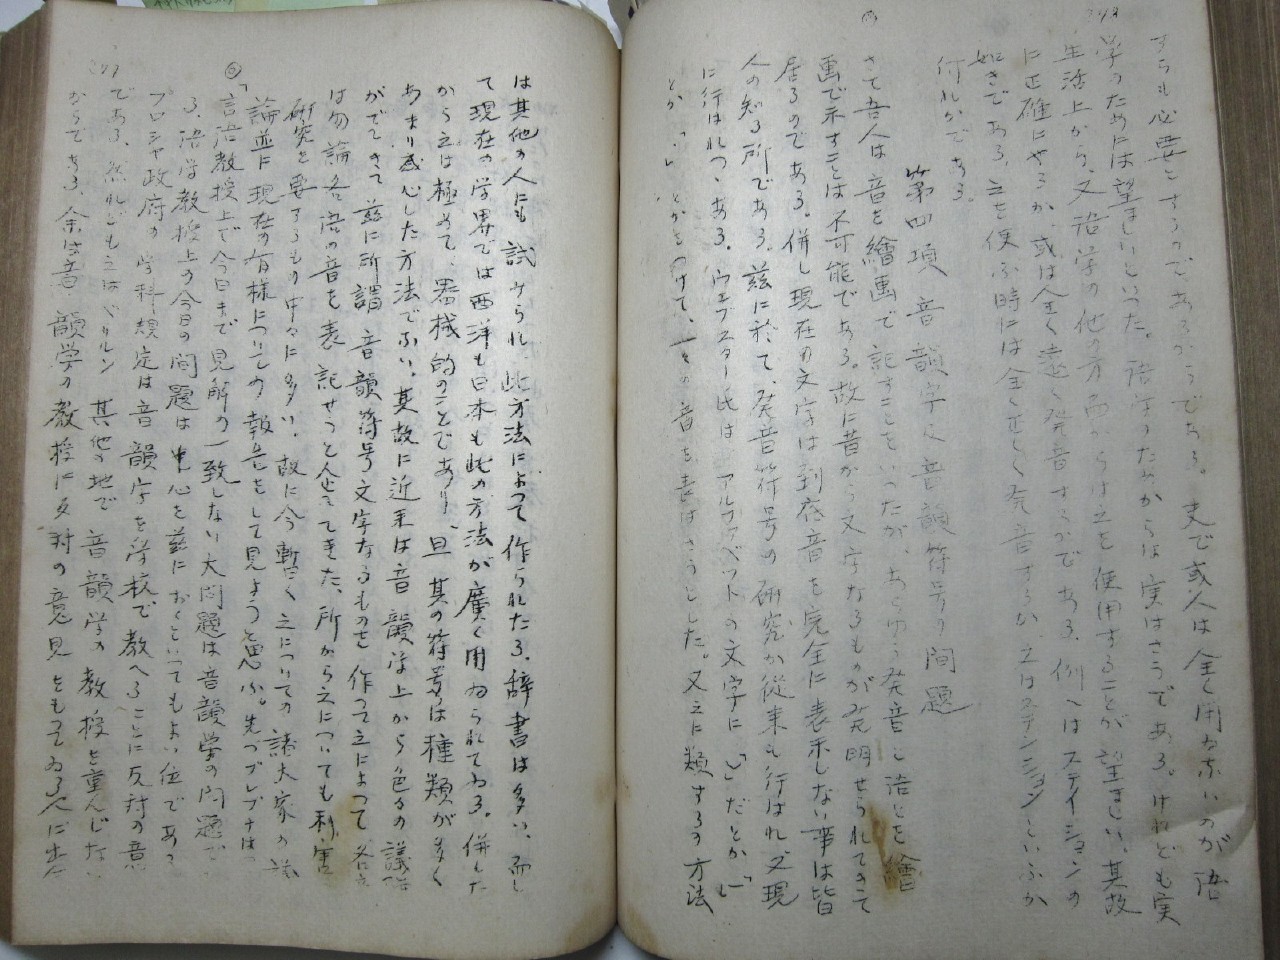 348
すらも必要とするのであるからである。夫で或人は全く用ゐないのが語
学のためには望ましいといつた。語学のためからは実はさうである。けれども実
生活上から、又語学の他の方面からは之を使用することが望ましい。其故
に正確にやるか、或は全く違く発音するかである。例へはステイションの
如きである。之を使ふ時には全く正しく発音するか之はステンションといふか
何れかである。
第四項 音韻字に音韻符号の問題
さて吾人は音を繪画で記すことをいつたが、あらゆる発音し語とを繪
画で示すことは不可能である。故に昔から文字なるものが発明せられてきて
居るのである。併し現在の文字は到底音を完全に表示しない事は皆
人の知る所である。茲に於て、発音符号の研究が従来も行はれ、又現
に行はれつゝある。ウエブスター氏はアルファベットの文字に
とか とかをつけて、一々の音を表はさうとした。又之に類するの方法
349
は其他の人にも試みられ此方法によつて作られたる辞書は多い、而し
て現在の学界では西洋も日本も此の方法が廣く用ゐられてゐる。併した
から之は極めて、器械的のことであり、且其の符号は種類が多く
あまり感心した方法でない。其故に近来は音韻学上から色々の議論
がでてきて茲に所謂音韻符号文字なるものを作つて之によつて各
は勿論各語の音を表記せうと企てゝきた、所から之についても利害
研究を要するもの中々に多い、故に今暫く之についての諸大家の議
論並に現在の有様についての報告をして見ようと思ふ。先づブレブナは
「言語教授上で今日まで見解の一致しない大問題は音韻学の問題で
る、語学教授上の今日の問題は中心を茲におくといつてもよい位であつ
プロシヤ政府の学科規定は音韻字を学校で教へることに反対の意
である、然れども之はベルリン其他の地で音韻学の教授を重んじない
からである、余は音韻学の教授に反対の意見をもつてゐる人に出